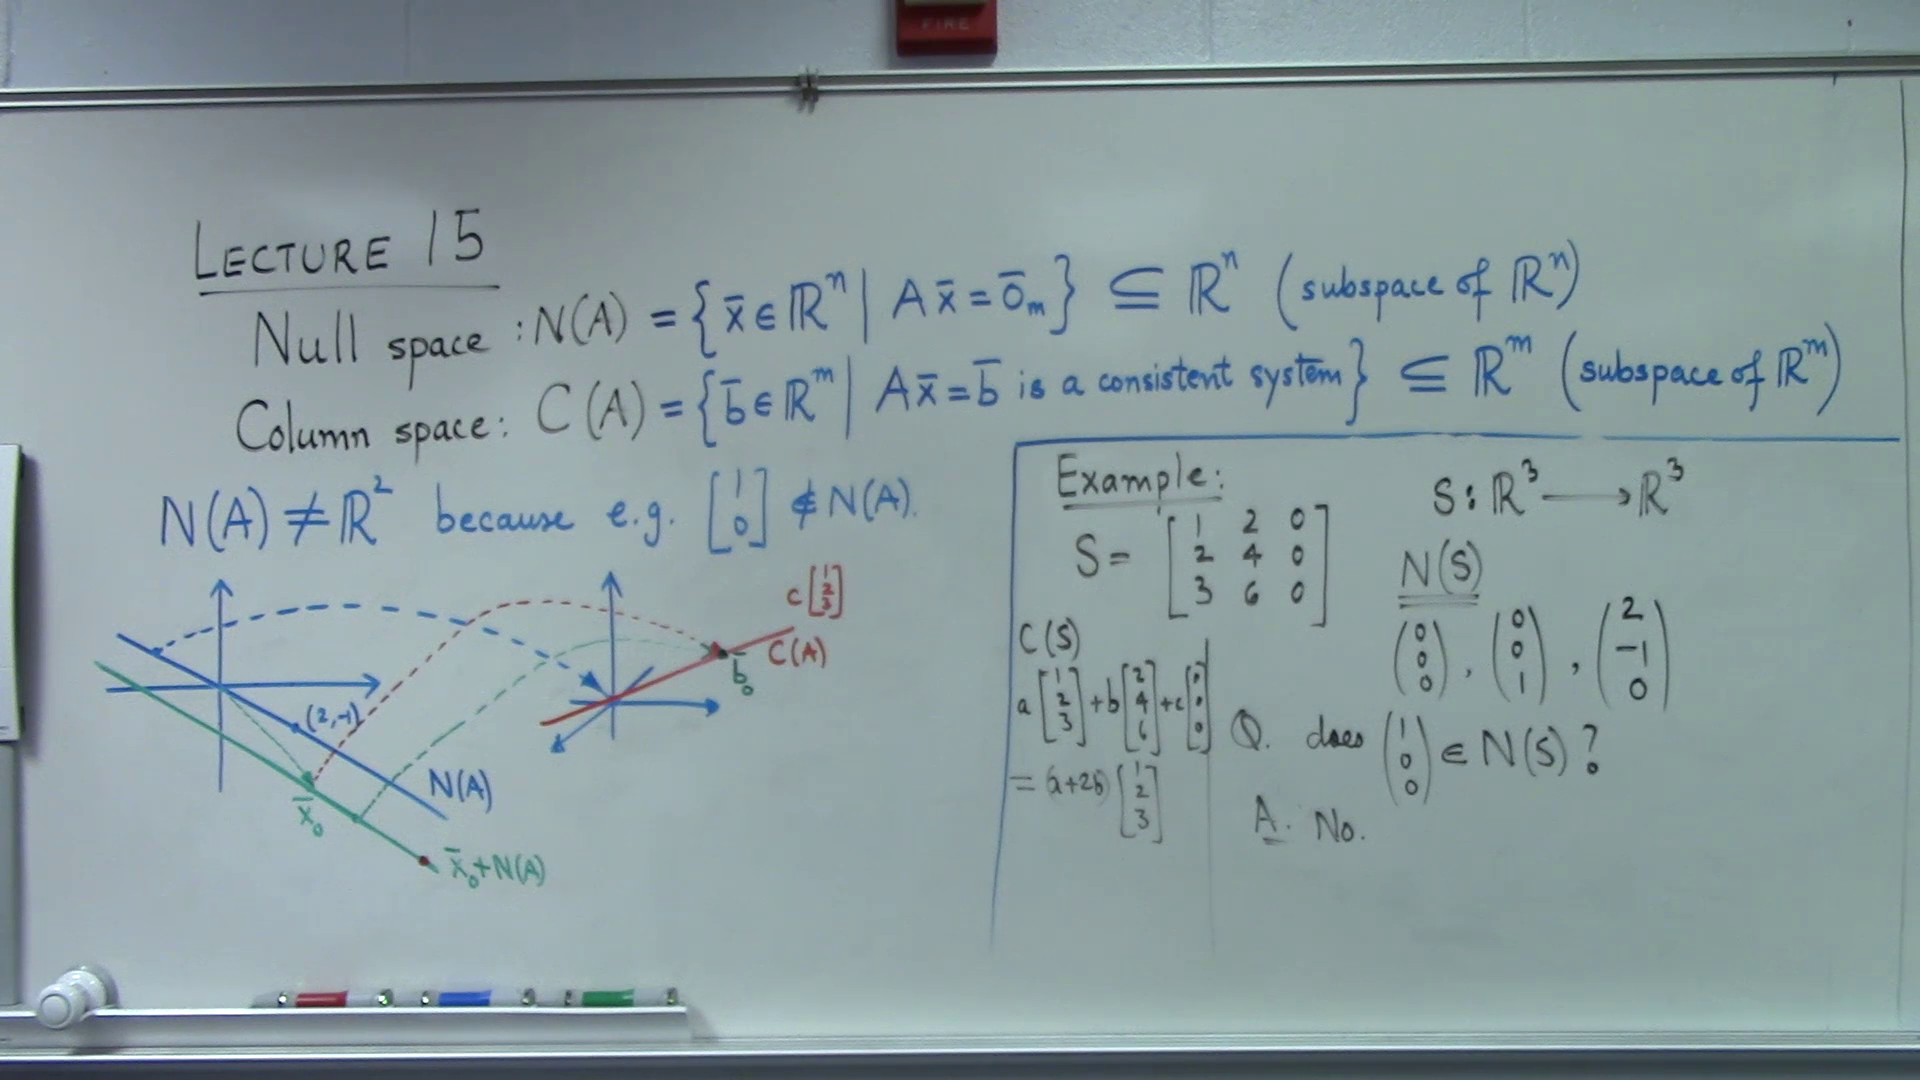 FIRE
LECTURE 15
Null space : N(A) = { x̄ ∈ ℝⁿ | Ax̄ = ōₘ } ⊆ ℝⁿ (subspace of ℝⁿ)
Column space: C(A) = { b̄ ∈ ℝᵐ | Ax̄ = b̄ is a consistent system } ⊆ ℝᵐ (subspace of ℝᵐ)
N(A) ≠ ℝ² because e.g. [1 0] ∉ N(A).
c [1 2 3]
C(A)
b̄₀
(2,-1)
N(A)
x̄₀
x̄₀+N(A)
Example:
S = [1 2 0
2 4 0
3 6 0]
S: ℝ³ → ℝ³
C(S)
a [1 2 3] + b [2 4 6] + c [0 0 0]
= (a+2b) [1 2 3]
N(S)
(0 0 0), (0 0 1), (2 -1 0)
Q. does (1 0 0) ∈ N(S)?
A. No.